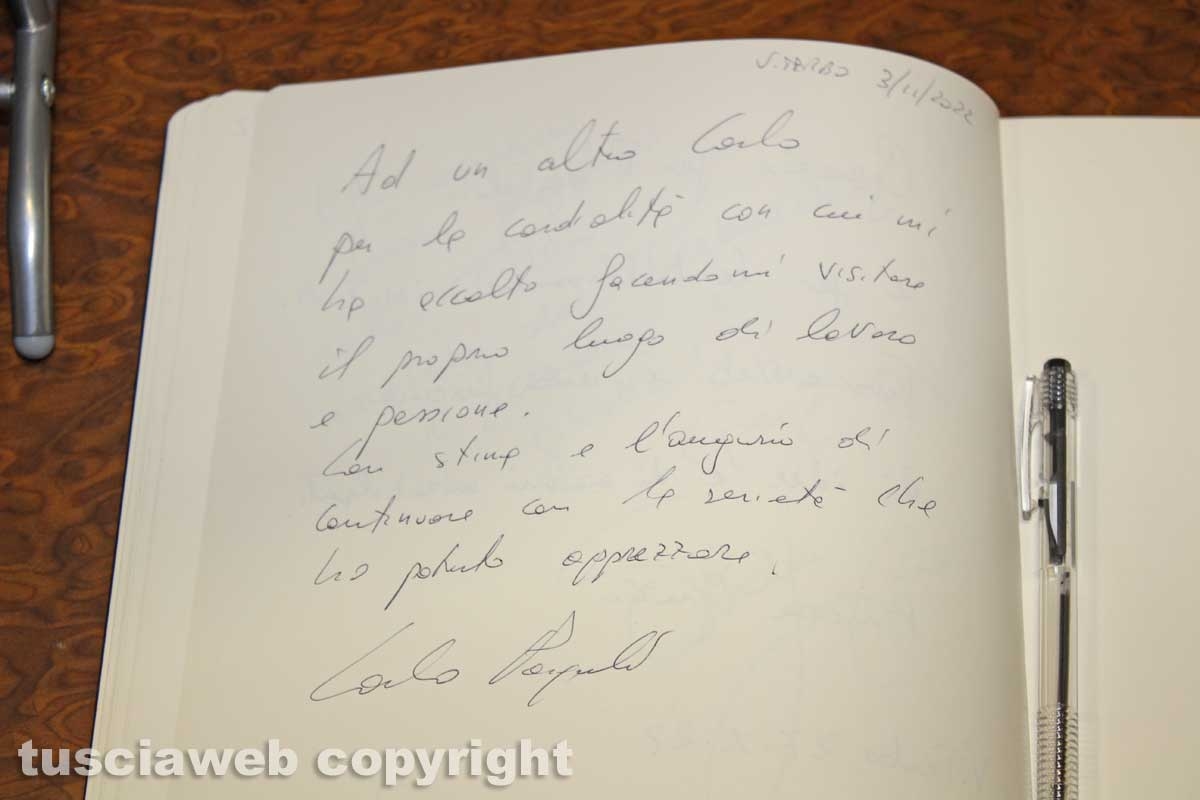 VITERBO 3/11/2022
Ad un altro Carlo
per la cordialità con cui mi
ha accolto facendomi visitare
il proprio luogo di lavoro
e passione.
Con stima e l'augurio di
continuare con la serietà che
ho potuto apprezzare.
Carlo
tusciaweb copyright